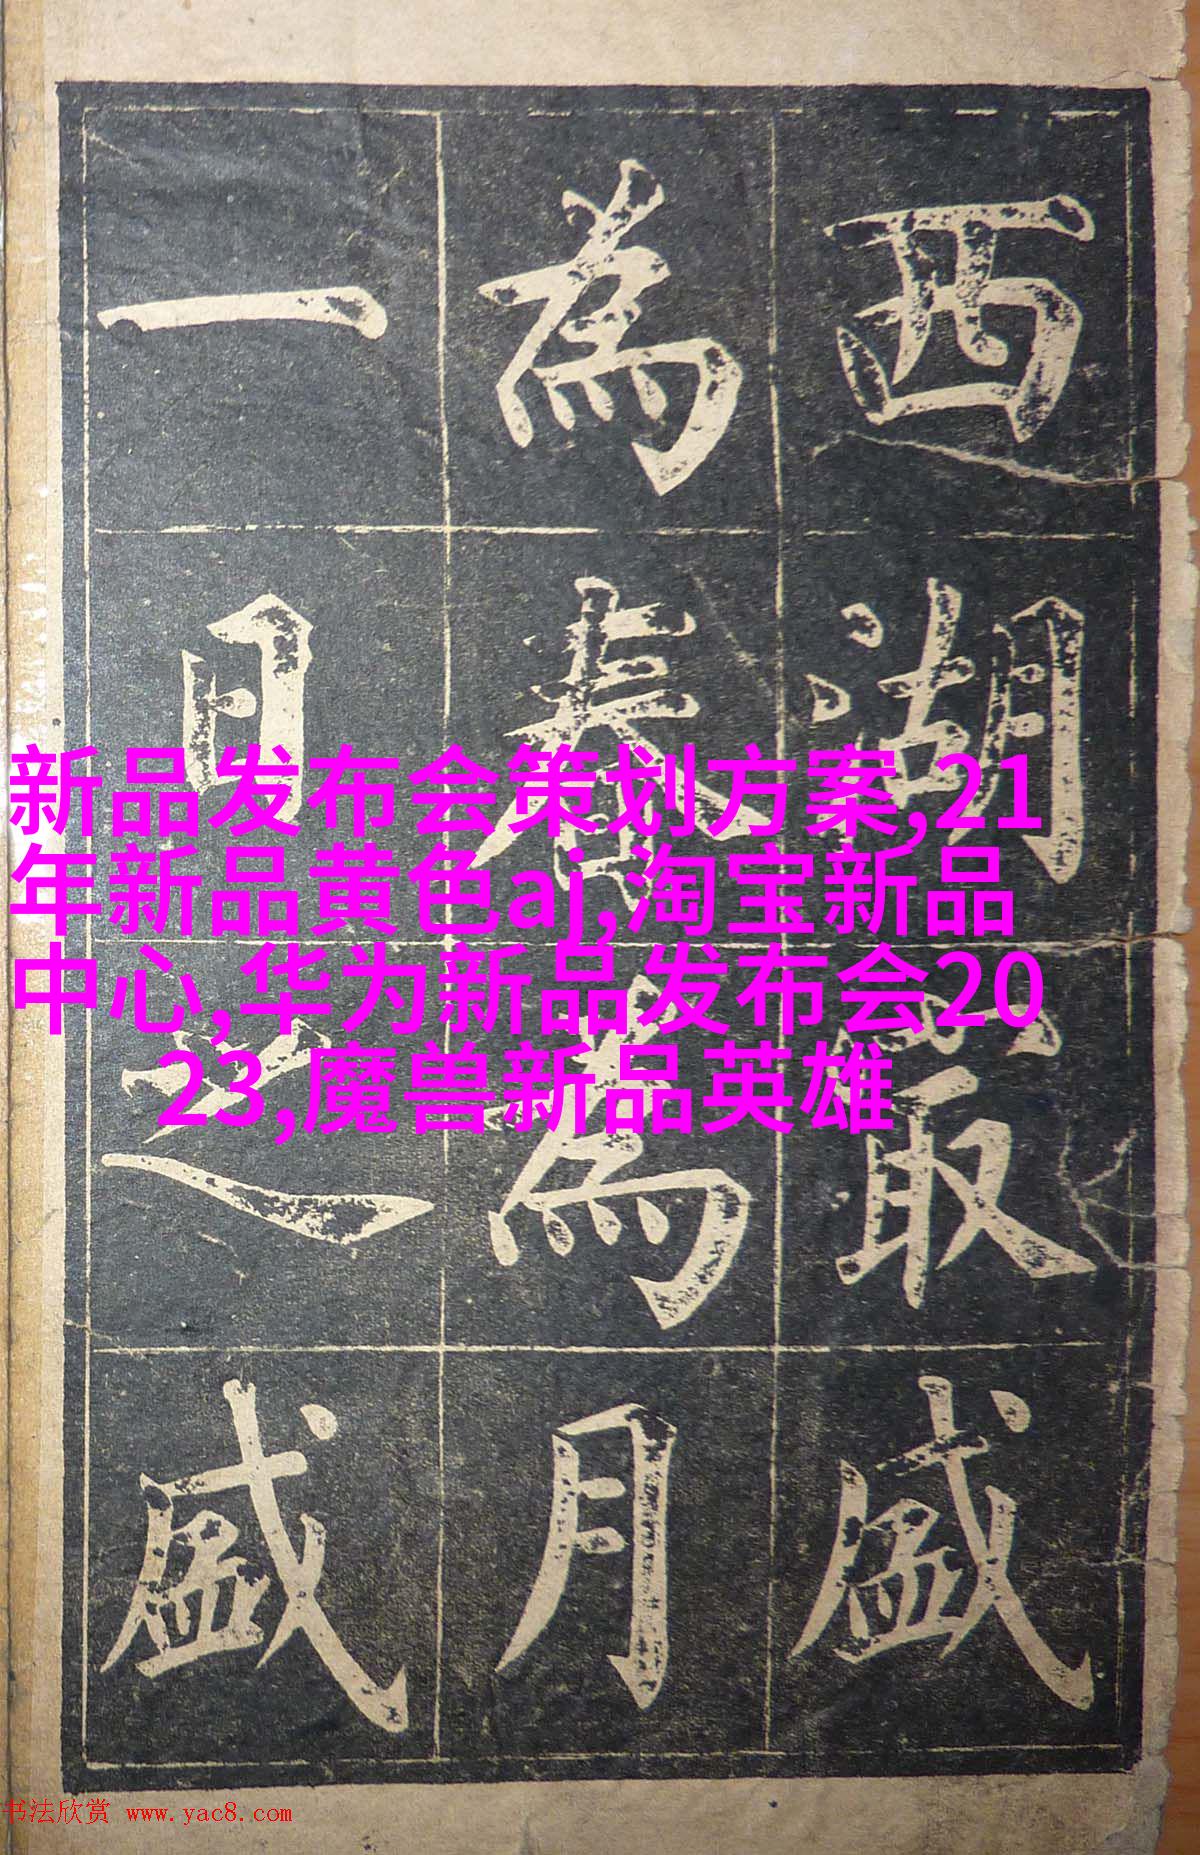 西湖最盛
為春為月
一日之盛
新品发布会策划方案,21
年新品黄色aj,淘宝新品
中心,华为新品发布会20
23,魔兽新品英雄
书法欣赏 www.yac8.com